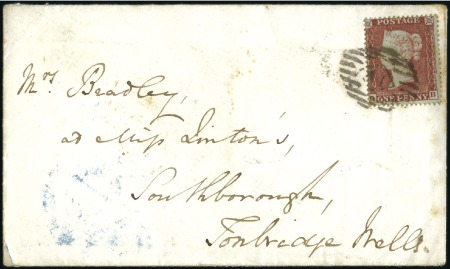 POSTAGE
ONE PENNY
Mrs Bradley,
at Miss Linton's,
Southborough,
Tonbridge Wells.